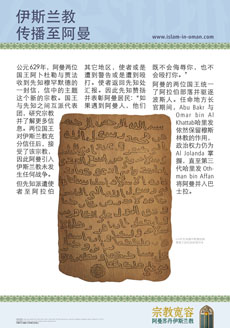 伊斯兰教
传播至阿曼
www.islam-in-oman.com
公元629年，阿曼两位
国王阿卜杜勒与贾法
收到先知穆罕默德的
一封信，信中的主题
这个新的宗教。国王
与先知之间互派代表
团，研究宗教
并了解更多信
息。两位国王
对伊斯兰教充
分信任后，接
受了该宗教，
因此阿曼引入
伊斯兰教未发
生任何战争。
但先知派遣使
者至阿拉伯
其它地区，使者或是
遭到警告或是遭到殴
打。使者返回先知处
汇报。因此先知赞扬
并表彰阿曼居民：“如
果遇到阿曼人，他们
既不会侮辱你，也不
会殴打你。”
阿曼的两位国王统一
了阿拉伯部落并驱逐
波斯人。任命地方长
官期间，Abu Bakr 与
Omar bin Al
Khattab哈里发
依然保留穆斯
林教的作用，
政治权力仍为
Al Jolanda 掌
握，直至第三
代哈里发 Oth-
man bin Affan
将阿曼并入巴
士拉。
宗教宽容
阿曼苏丹伊斯兰教